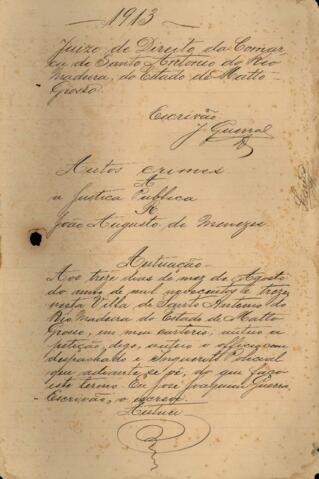 1913
Juizo de Direito da Comar
ca de Santo Antonio do Rio
Madeira, do Estado de Matto-
Grosso.
Escrivão
J. Guerra
Autos crimes
A
a Justiça Publica
R
João Augusto de Menezes
Autuação
Aos treze dias do mez de Agosto
do anno de mil novecentos e treze
nesta Villa, de Santo Antonio do
Rio Madeira do Estado de Matto-
Grosso, em meu cartorio, autuo a
petição, digo, autuo o officio com
despachado e Inquerito Policial
que adiante se vê, do que faço
este termo. Eu José Joaquim Guerra
Escrivão, o escrevi
Autuei